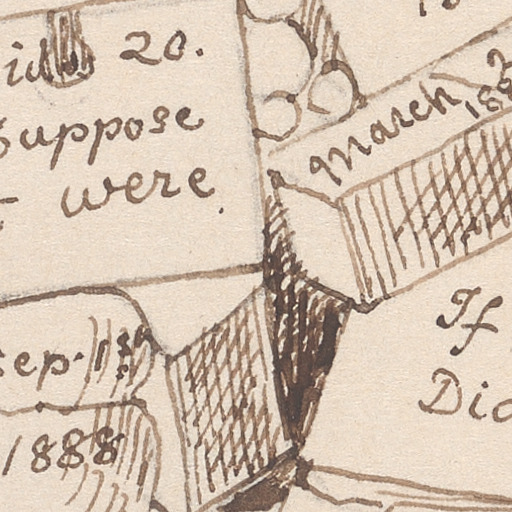 id 20.
Suppose
were
March 188
Sep. 1st
1888
If
Did